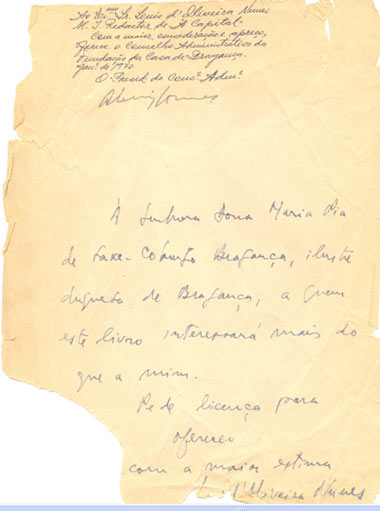 Ao Exmo Sr. Louis d'Oliveira Nunes
M. I. Redactor de A Capital.
Com a maior consideração e apreço,
oferece o Conselho Administrativo da
Fundação da Casa de Bragança.
Janº de 1970
O Presid. do Consº. Admº.
À Senhora Dona Maria Pia
de Saxe-Coburgo Bragança, ilustre
duquesa de Bragança, a quem
este livro interessará mais do
que a mim.
Pede licença para
oferecer
com a maior estima
d'Oliveira Nunes